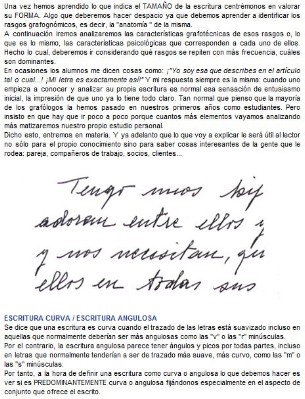 Una vez hemos aprendido lo que indica el TAMAÑO de la escritura centrémonos en valorar
su FORMA. Algo que deberemos hacer despacio ya que debemos aprender a identificar los
rasgos grafonómicos, es decir, la "anatomía" de la misma.
A continuación iremos analizaremos las características grafotécnicas de esos rasgos o, lo
que es lo mismo, las características psicológicas que corresponden a cada uno de ellos.
Hecho lo cual, deberemos ir considerando qué rasgos se repiten con más frecuencia, cuáles
son dominantes.
En ocasiones los alumnos me dicen cosas como: "¡Yo soy ese que describes en el artículo
tal o cual...! ¡Mi letra es exactamente así!" Y mi respuesta siempre es la misma: cuando uno
empieza a conocer y analizar su propia escritura es normal esa sensación de entusiasmo
inicial, la impresión de que uno ya lo tiene todo claro. Tan normal que pienso que la mayoría
de los grafólogos la hemos pasado en nuestros primeros años como estudiantes. Pero
insisto en que hay que ir poco a poco porque cuantos más elementos vayamos analizando
más matizaremos nuestro propio estudio personal.
Dicho esto, entremos en materia. Y ya adelanto que lo que voy a explicar le será útil al lector
no sólo para el propio conocimiento sino para saber cosas interesantes de la gente que le
rodea: pareja, compañeros de trabajo, socios, clientes...
Tengo unos hij
adoran entre ellos y
y nos necesitan, qu
ellos en todas sus
ESCRITURA CURVA / ESCRITURA ANGULOSA
Se dice que una escritura es curva cuando el trazado de las letras está suavizado incluso en
aquellas que normalmente deberían ser más angulosas como las "v" o las "r" minúsculas.
Por el contrario, la escritura angulosa parece tener ángulos y picos por todas partes, incluso
en letras que normalmente tenderían a ser de trazado más suave, más curvo, como las "m" o
las "s" minúsculas.
Por tanto, a la hora de definir una escritura como curva o angulosa lo que debemos hacer es
ver si es PREDOMINANTEMENTE curva o angulosa fijándonos especialmente en el aspecto de
conjunto que ofrece el escrito.